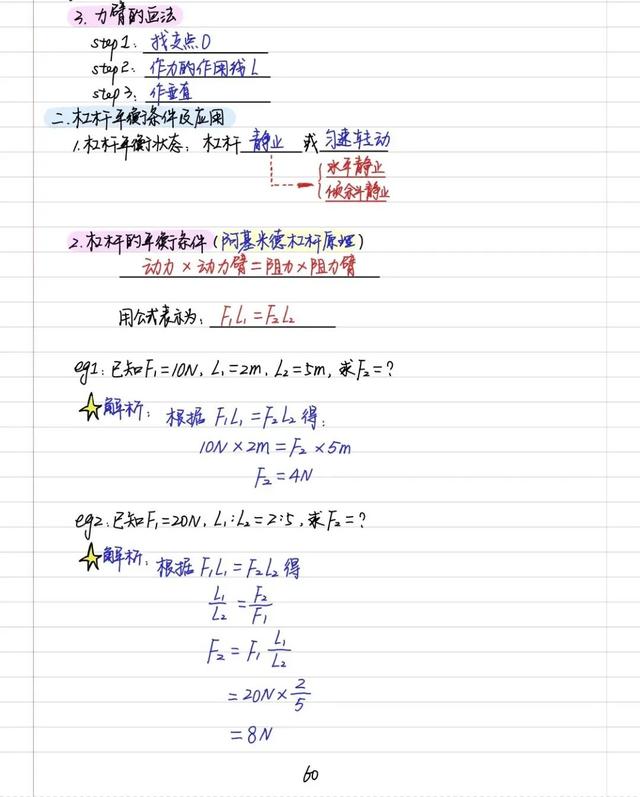 3. 力臂的画法
step1: 找支点O
step2: 作力的作用线L
step3: 作垂直
二.杠杆平衡条件及应用
1.杠杆平衡状态: 杠杆 静止 或 匀速转动
水平静止
倾斜静止
2.杠杆的平衡条件 (阿基米德杠杆原理)
动力×动力臂=阻力×阻力臂
用公式表示为: F₁L₁=F₂L₂
eg1: 已知F₁=10N, L₁=2m, L₂=5m, 求F₂=?
解析: 根据 F₁L₁=F₂L₂得:
10N×2m=F₂×5m
F₂=4N
eg2: 已知F₁=20N, L₁:L₂=2:5, 求F₂=?
解析: 根据 F₁L₁=F₂L₂得
L₁/L₂=F₂/F₁
F₂=F₁ L₁/L₂
=20N×2/5
=8N
60